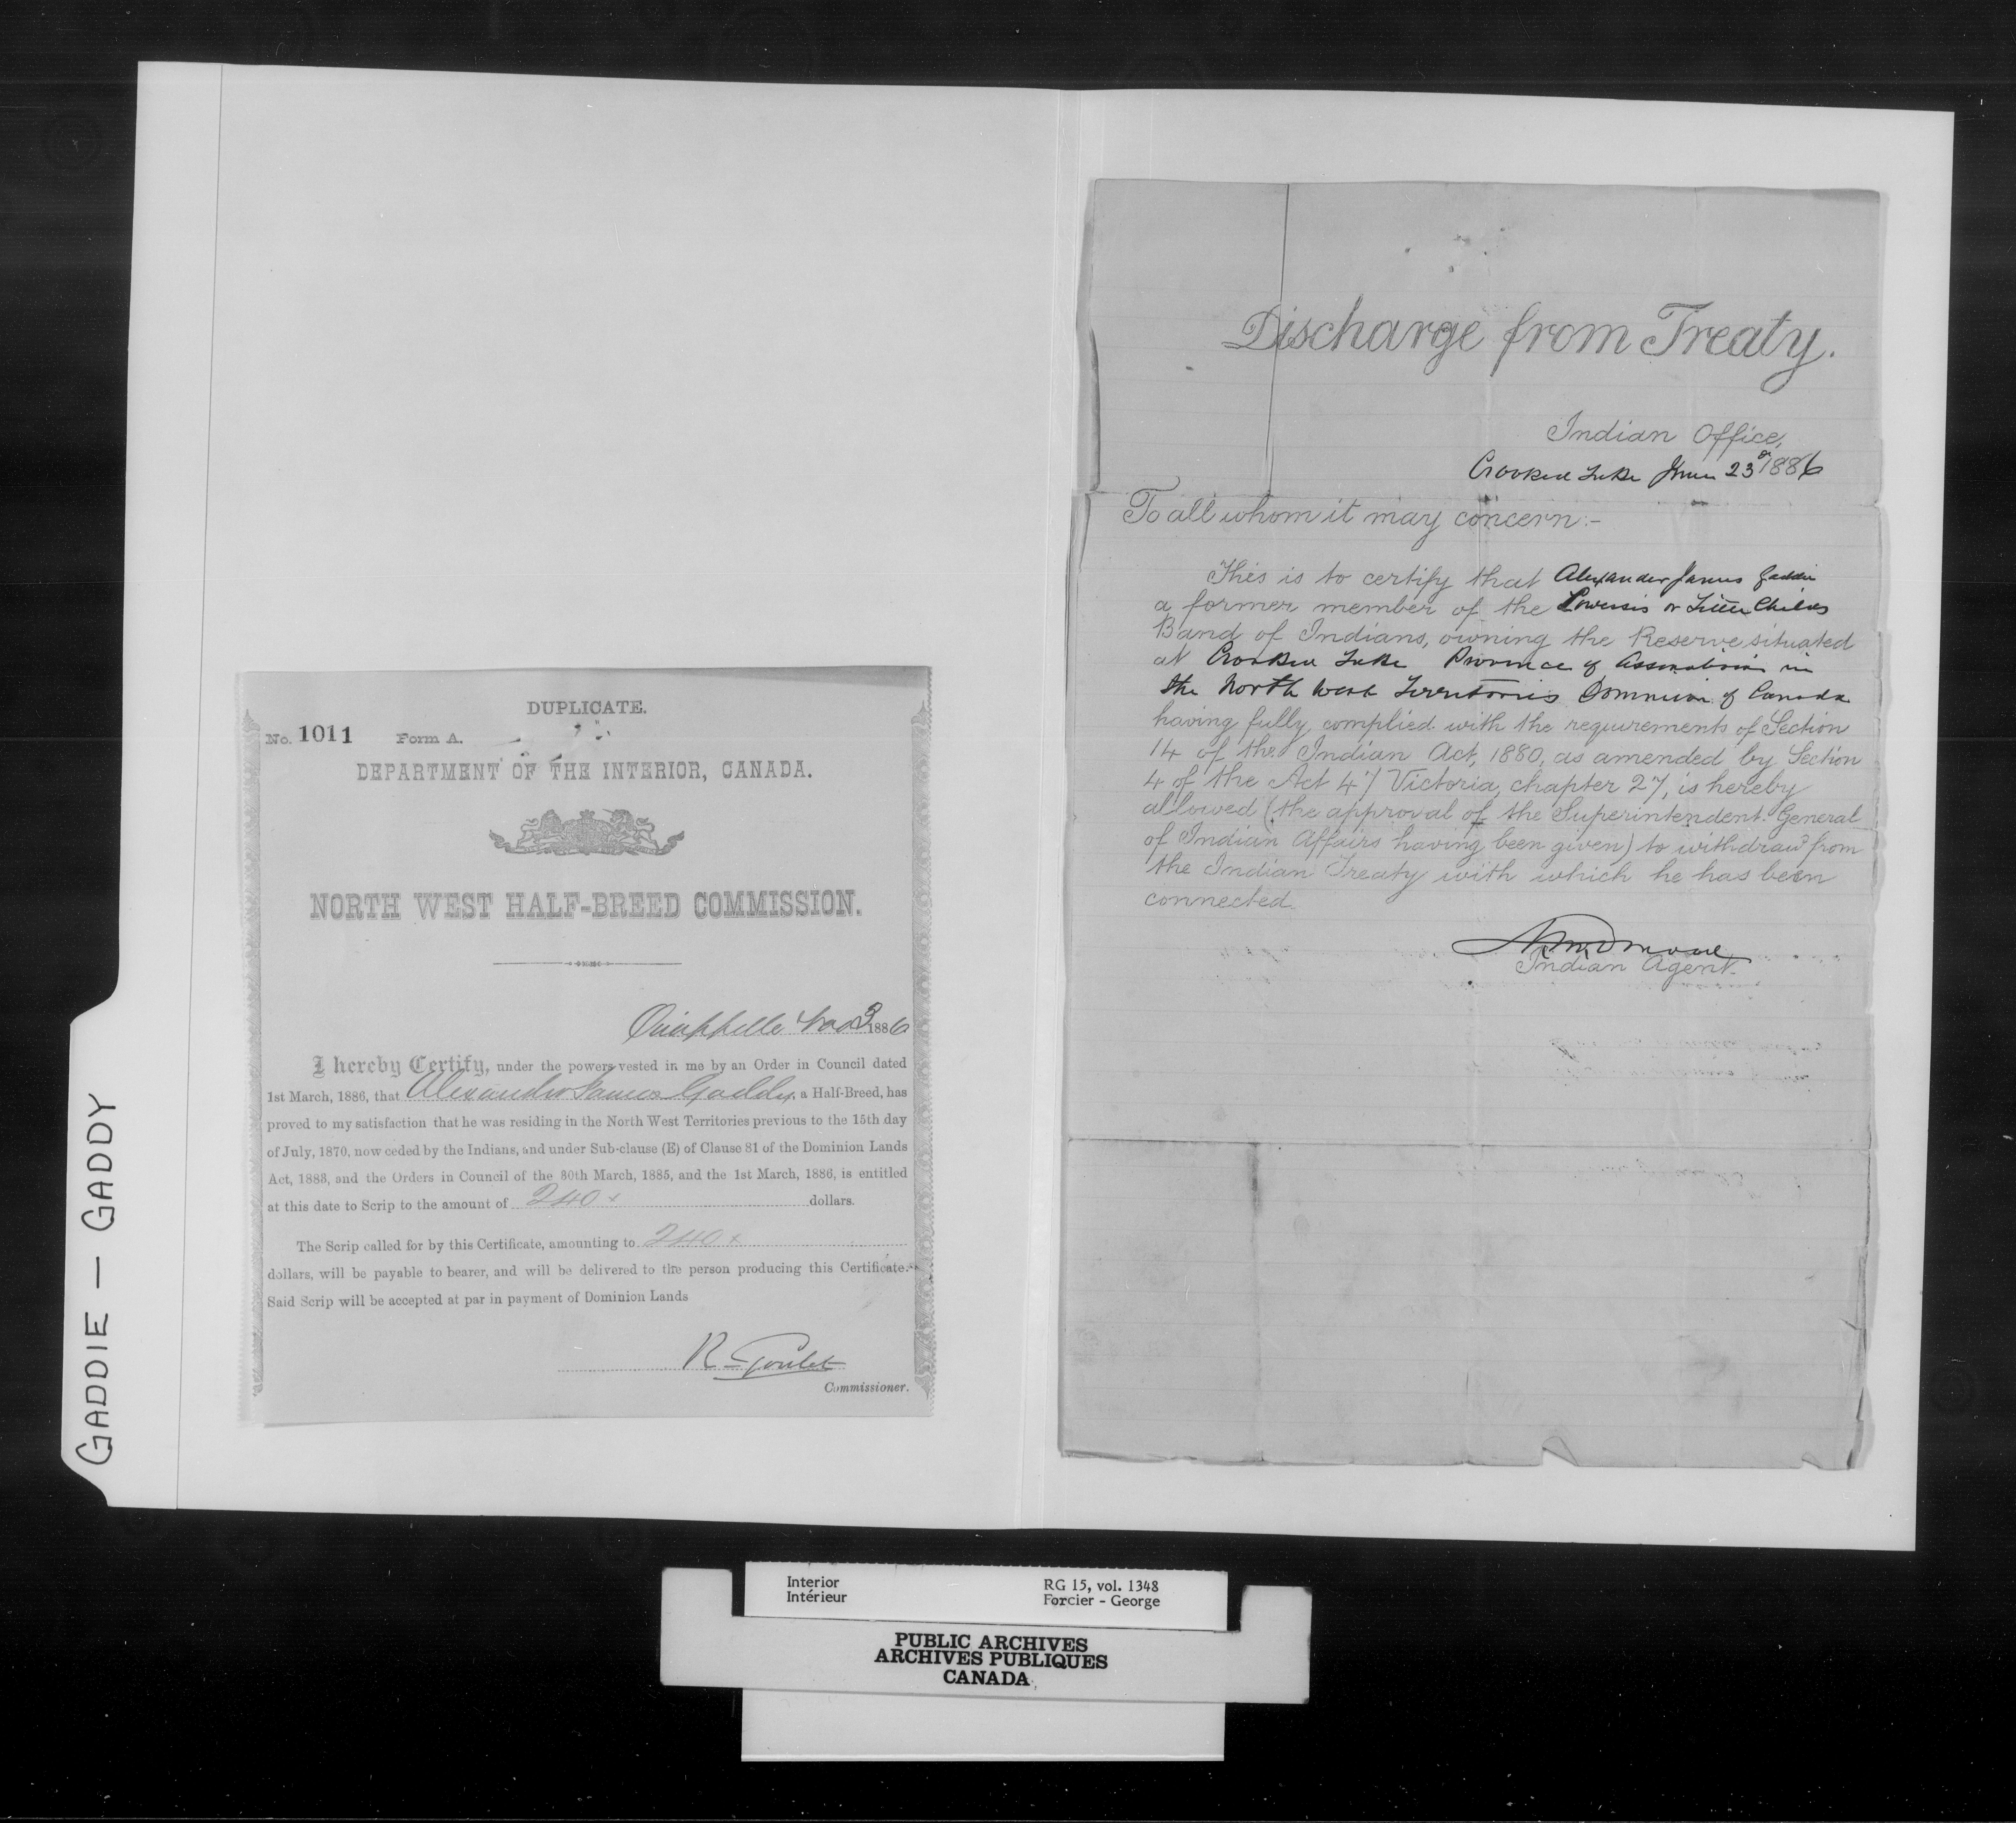 GADDIE — GADDY
DUPLICATE.
No. 1011 Form A.
DEPARTMENT OF THE INTERIOR, CANADA.
NORTH WEST HALF-BREED COMMISSION.
Qu'appelle 1886
I hereby Certify, under the powers vested in me by an Order in Council dated
1st March, 1886, that Alexander James Gaddy, a Half-Breed, has
proved to my satisfaction that he was residing in the North West Territories previous to the 15th day
of July, 1870, now ceded by the Indians, and under Sub-clause (E) of Clause 81 of the Dominion Lands
Act, 1883, and the Orders in Council of the 30th March, 1885, and the 1st March, 1886, is entitled
at this date to Scrip to the amount of 240 x dollars.
The Scrip called for by this Certificate, amounting to 240 x
dollars, will be payable to bearer, and will be delivered to the person producing this Certificate.
Said Scrip will be accepted at par in payment of Dominion Lands
R Goulet
Commissioner.
Discharge from Treaty.
Indian Office,
Crooked Lake June 23d 1886
To all whom it may concern:-
This is to certify that Alexander James Gaddie
a former member of the or Little Childs
Band of Indians, owning the Reserve situated
at Crooked Lake Province of Assiniboia in
the North West Territories Dominion of Canada
having fully complied with the requirements of Section
14 of the Indian Act, 1880, as amended by Section
4 of the Act 47 Victoria, chapter 27, is hereby
allowed (the approval of the Superintendent General
of Indian Affairs having been given) to withdraw from
the Indian Treaty with which he has been
connected.
Indian Agent.
Interior RG 15, vol. 1348
Intérieur Forcier - George
PUBLIC ARCHIVES
ARCHIVES PUBLIQUES
CANADA